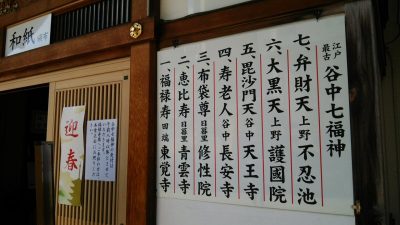 江戸最古 谷中七福神
七、弁財天 上野 不忍池
六、大黒天 上野 護國院
五、毘沙門天 谷中 天王寺
四、寿老人 谷中 長安寺
三、布袋尊 日暮里 修性院
二、恵比寿 日暮里 青雲寺
一、福禄寿 田端 東覚寺
和紙
迎春